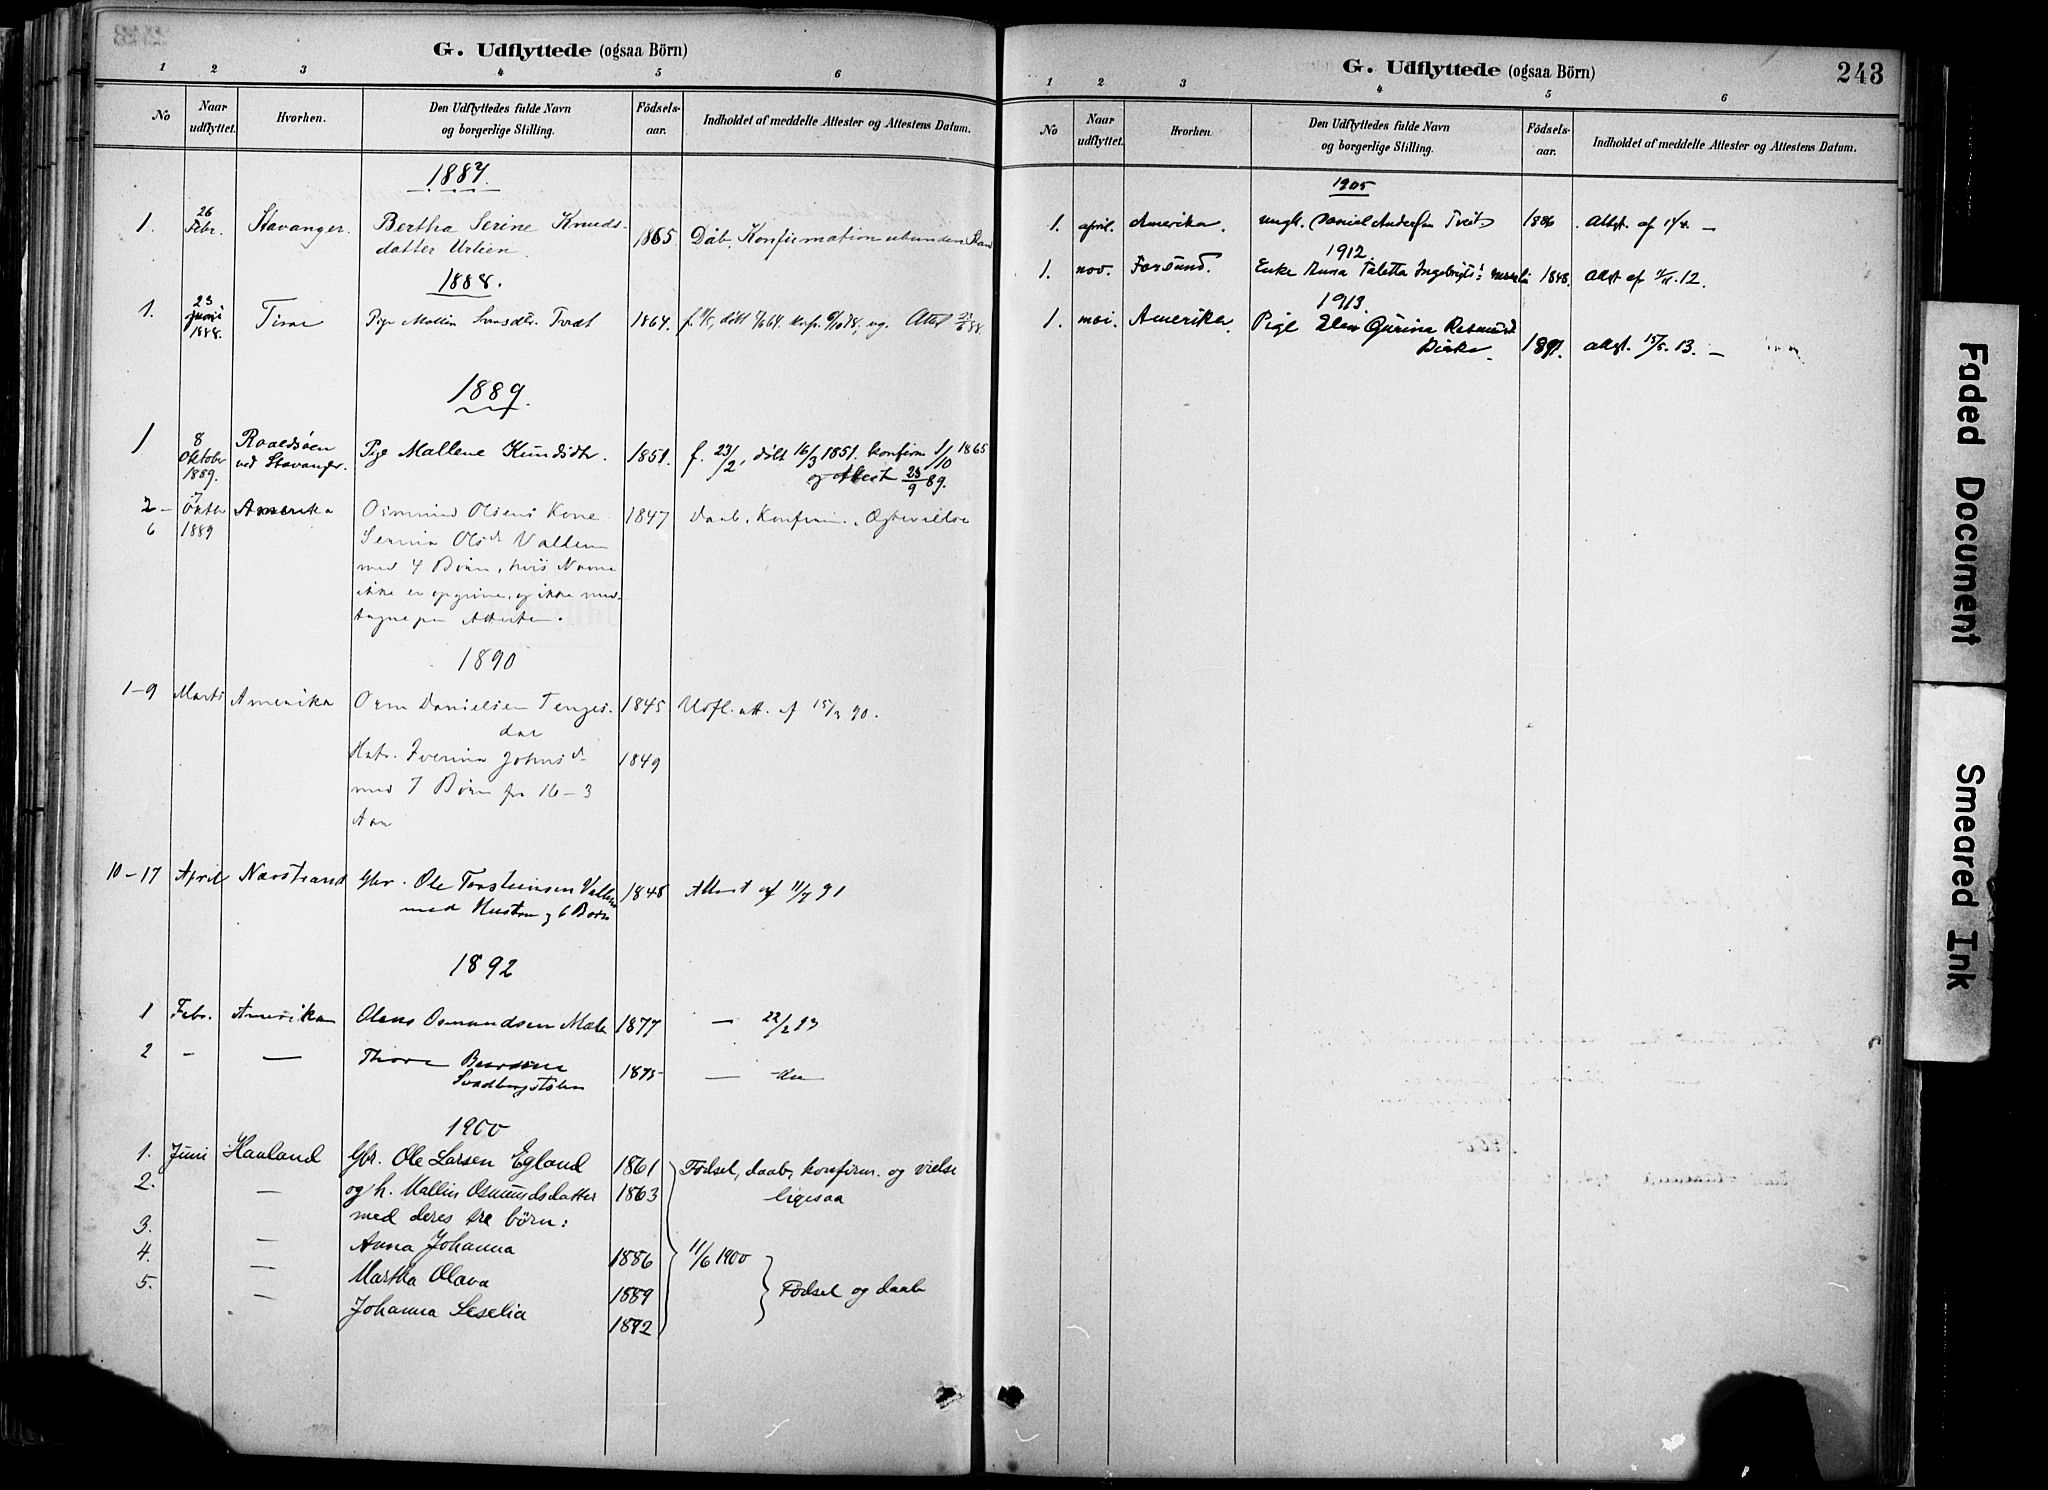 G. Udflyttede (ogsaa Börn)
1 2 3 4 5 6
No Naar udflyttet. Hvorhen. Den Udflyttedes fulde Navn og borgerlige Stilling. Födsels-aar. Indholdet af meddelte Attester og Attestens Datum.
1887.
1. 26 Febr. Stavanger. Bertha Serine Knuds- 1865 Dåb, Konfirmation ubunden Stand
datter Urlien.
1888.
1. 23 Juni 1888. Time Pige Mallin Svensdtr. Tvedt 1864.
1889.
1 8 Oktober 1889. Roaldsöen ved Stavanger. Pige Mallene Knudsdtr. 1851. f. 23/2, döbt 16/3 1851. konfirm 1/10 1865
og Attest 23/9 89.
2- 6 7 Oktbr 1889 Amerika Osmund Olsens Kone 1847 Daab, Konfirm., Ægtevielse
Serina Olsd Vallem
med 4 Börn, hvis Navne
ikke er opgivne, og ikke med-
tagne paa Attesten.
1890
1-9 Marts Amerika Orm Danielsen Tenges- 1845 Udfl. att. af 15/3 90.
dal
Hstr. Iverina Johnsd 1849
med 7 Börn fra 16-3
Aar
10-17 April Nærstrand Gbr. Ole Torsteinsen Vallem 1848 Attest af 11/7 91
med Hustru og 6 Børn
1892
1 Febr. Amerika Olens Osmundsen Mæle 1877 — 22/2 93
2 - — Thore 1875 —
1900
1. Juni Haaland Gbr. Ole Larsen Egland 1861 Fødsel, daab, konfirm. og vielse
2. — og h. Mallin Osmundsdatter 1863 ligesaa
med deres tre børn:
3. — Anna Johanna 1886 11/6 1900
4. — Martha Olava 1889 Fødsel og daab
5. — Johanna Seselia 1892
G. Udflyttede (ogsaa Börn) 243
1 2 3 4 5 6
No Naar udflyttet. Hvorhen. Den Udflyttedes fulde Navn og borgerlige Stilling. Födsels-aar. Indholdet af meddelte Attester og Attestens Datum.
1905
1. april. Amerika. ungk. Daniel Andersen Tveit 1886 Attest af 1/4. —
1912.
1. nov. Farsund. Enke Anna Taletta Ingebrigts: 1848. Attst af 12.
1913.
1. mai. Amerika. Pige Elen Gurine Rasmusd.
Birke. 1891. attst. 15/5. 13. —
Faded Document
Smeared Ink